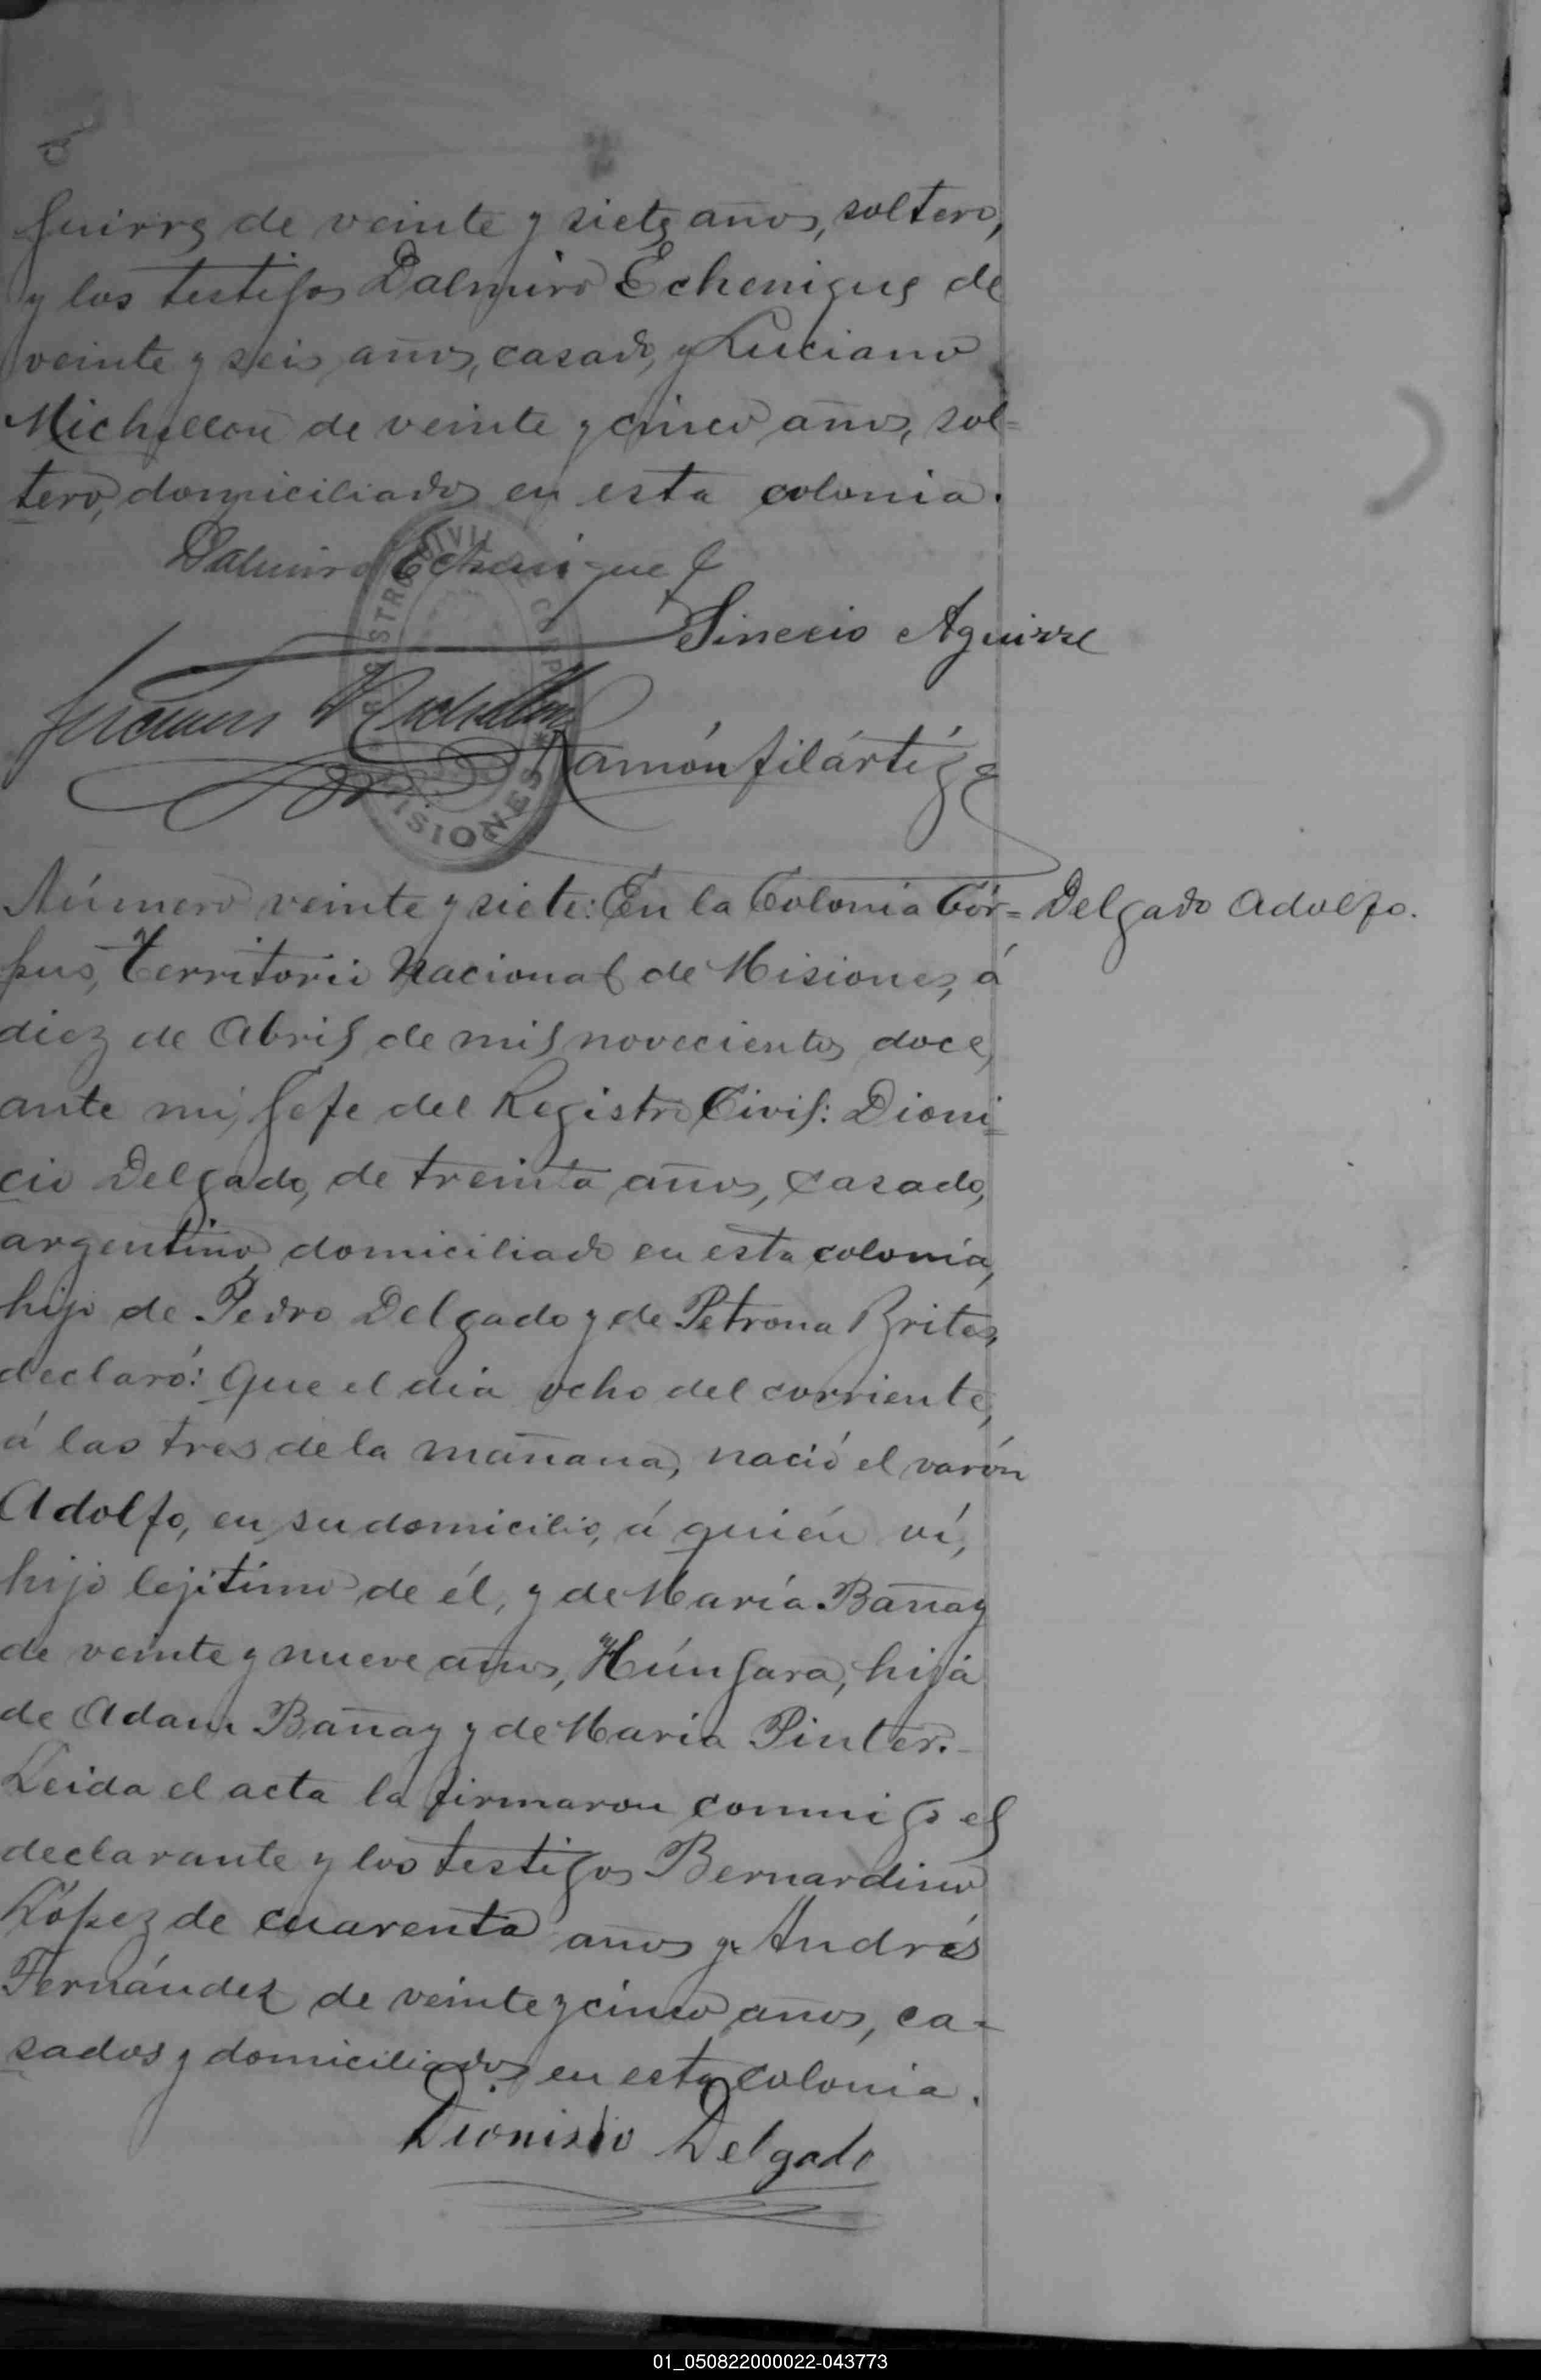 guirre de veinte y siete años, soltero,
y los testigos Dalmiro Echenique de
veinte y seis años, casado, y Luciano
Michellon de veinte y cinco años, sol=
tero, domiciliados en esta colonia.
Dalmiro Echenique
Sinecio Aguirre
Luciano Michellon
Ramón filártiga
MISIONES
Número veinte y siete: En la Colonia Cór=
pus, Territorio Nacional de Misiones, á
diez de Abril de mil novecientos doce,
ante mi, Gefe del Registro Civil: Dioni=
cio Delgado, de treinta años, casado,
argentino, domiciliado en esta colonia,
hijo de Pedro Delgado y de Petrona Brites,
declaró: Que el dia ocho del corriente,
á las tres de la mañana, nació el varón
Adolfo, en su domicilio, á quién ví,
hijo lejítimo de él, y de María Bañay
de veinte y nueve años, Húngara, hija
de Adam Bañay y de Maria Pinter.-
Leida el acta la firmaron conmigo el
declarante y los testigos Bernardino
López de cuarenta años y Andrés
Fernández de veinte y cinco años, ca=
sados y domiciliados en esta colonia.
Dionisio Delgado
Delgado Adolfo.
01_050822000022-043773